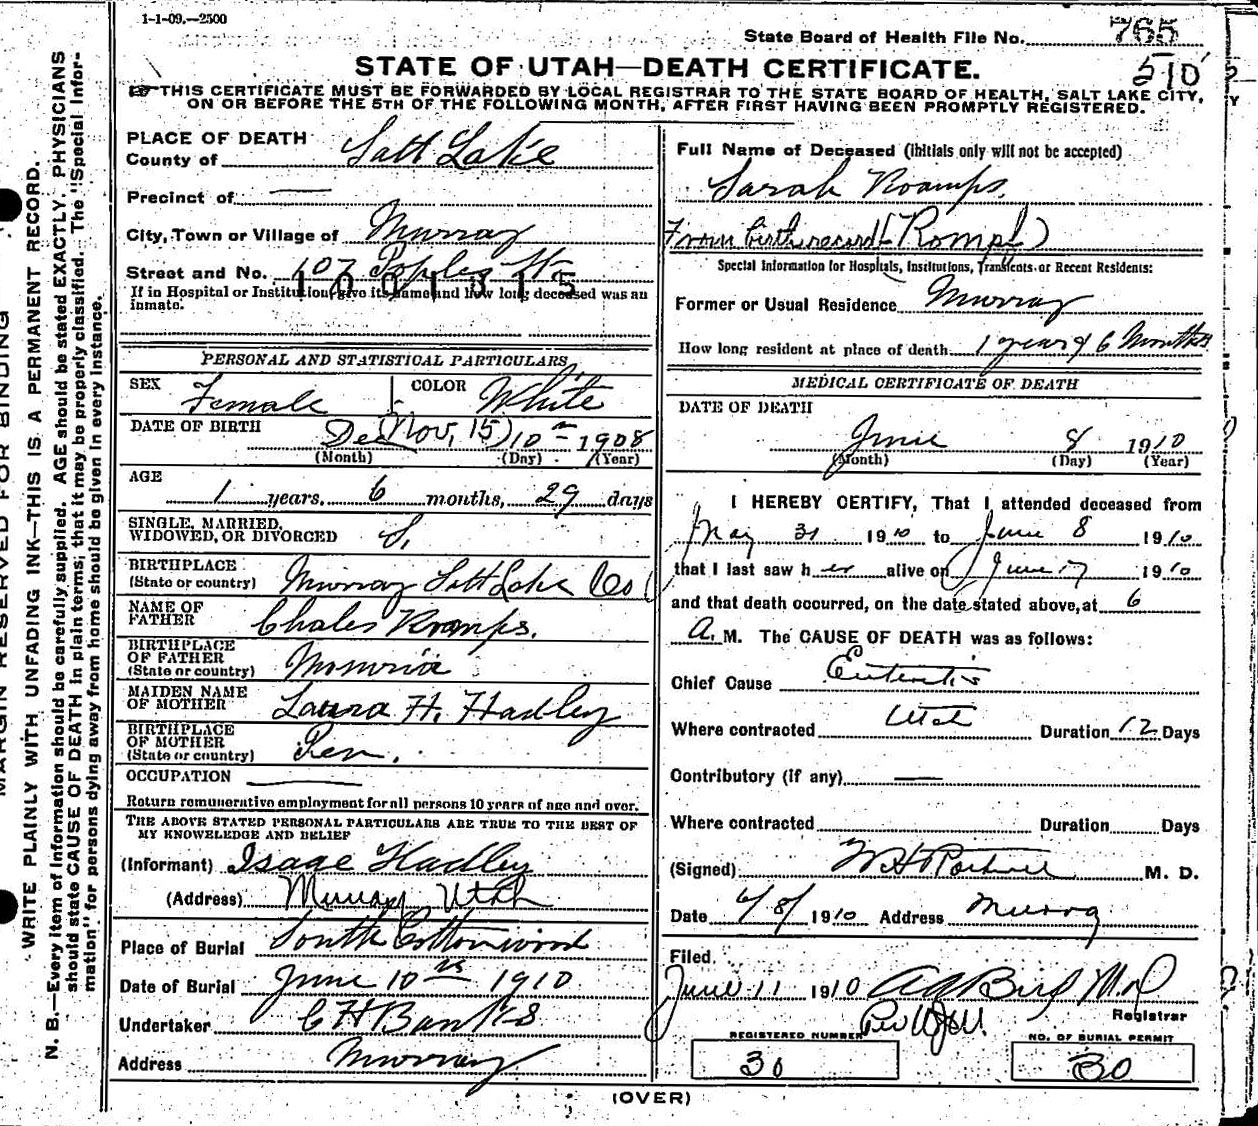 1-1-09.—2500
State Board of Health File No. 765
510
STATE OF UTAH—DEATH CERTIFICATE.
THIS CERTIFICATE MUST BE FORWARDED BY LOCAL REGISTRAR TO THE STATE BOARD OF HEALTH, SALT LAKE CITY,
ON OR BEFORE THE 5TH OF THE FOLLOWING MONTH, AFTER FIRST HAVING BEEN PROMPTLY REGISTERED.
MARGIN RESERVED FOR BINDING
WRITE PLAINLY WITH UNFADING INK—THIS IS A PERMANENT RECORD.
N. B.—Every item of information should be carefully supplied. AGE should be stated EXACTLY. PHYSICIANS
should state CAUSE OF DEATH in plain terms; that it may be properly classified. The "Special Infor-
mation" for persons dying away from home should be given in every instance.
PLACE OF DEATH
County of Salt Lake
Precinct of —
City, Town or Village of Murray
Street and No. 107 Poples St
1001315
If in Hospital or Institution give its name and how long deceased was an
inmate.
PERSONAL AND STATISTICAL PARTICULARS
SEX Female COLOR White
DATE OF BIRTH Dec (Nov, 15) 10 1908
(Month) (Day) (Year)
AGE
1 years, 6 months, 29 days
SINGLE, MARRIED,
WIDOWED, OR DIVORCED S.
BIRTHPLACE
(State or country) Murray Salt Lake Co
NAME OF
FATHER Chales Romps.
BIRTHPLACE
OF FATHER
(State or country)
MAIDEN NAME
OF MOTHER Laura H. Hadley
BIRTHPLACE
OF MOTHER
(State or country) Pen.
OCCUPATION —
Return remunerative employment for all persons 10 years of age and over.
THE ABOVE STATED PERSONAL PARTICULARS ARE TRUE TO THE BEST OF
MY KNOWELEDGE AND BELIEF
(Informant) Isage Hadley
(Address) Murray Utah
Place of Burial South Cottonwood
Date of Burial June 10th 1910
Undertaker C H Banks
Address Murray
Full Name of Deceased (initials only will not be accepted)
Sarah Roamps.
From birth record (Rompf)
Special Information for Hospitals, Institutions, Transients or Recent Residents:
Former or Usual Residence Murray
How long resident at place of death 1 year & 6 Months
MEDICAL CERTIFICATE OF DEATH
DATE OF DEATH
June 8 1910
(Month) (Day) (Year)
I HEREBY CERTIFY, That I attended deceased from
May 31 1910 to June 8 1910
that I last saw her alive on June 7 1910
and that death occurred, on the date stated above, at 6
A. M. The CAUSE OF DEATH was as follows:
Chief Cause Enteritis
Where contracted Utah Duration 12 Days
Contributory (if any) —
Where contracted Duration Days
(Signed) W H Rothwell M. D.
Date 6/8/ 1910 Address Murray
Filed
June 11 1910 A G Bird M.D
Registrar
REGISTERED NUMBER
30
NO. OF BURIAL PERMIT
30
(OVER)